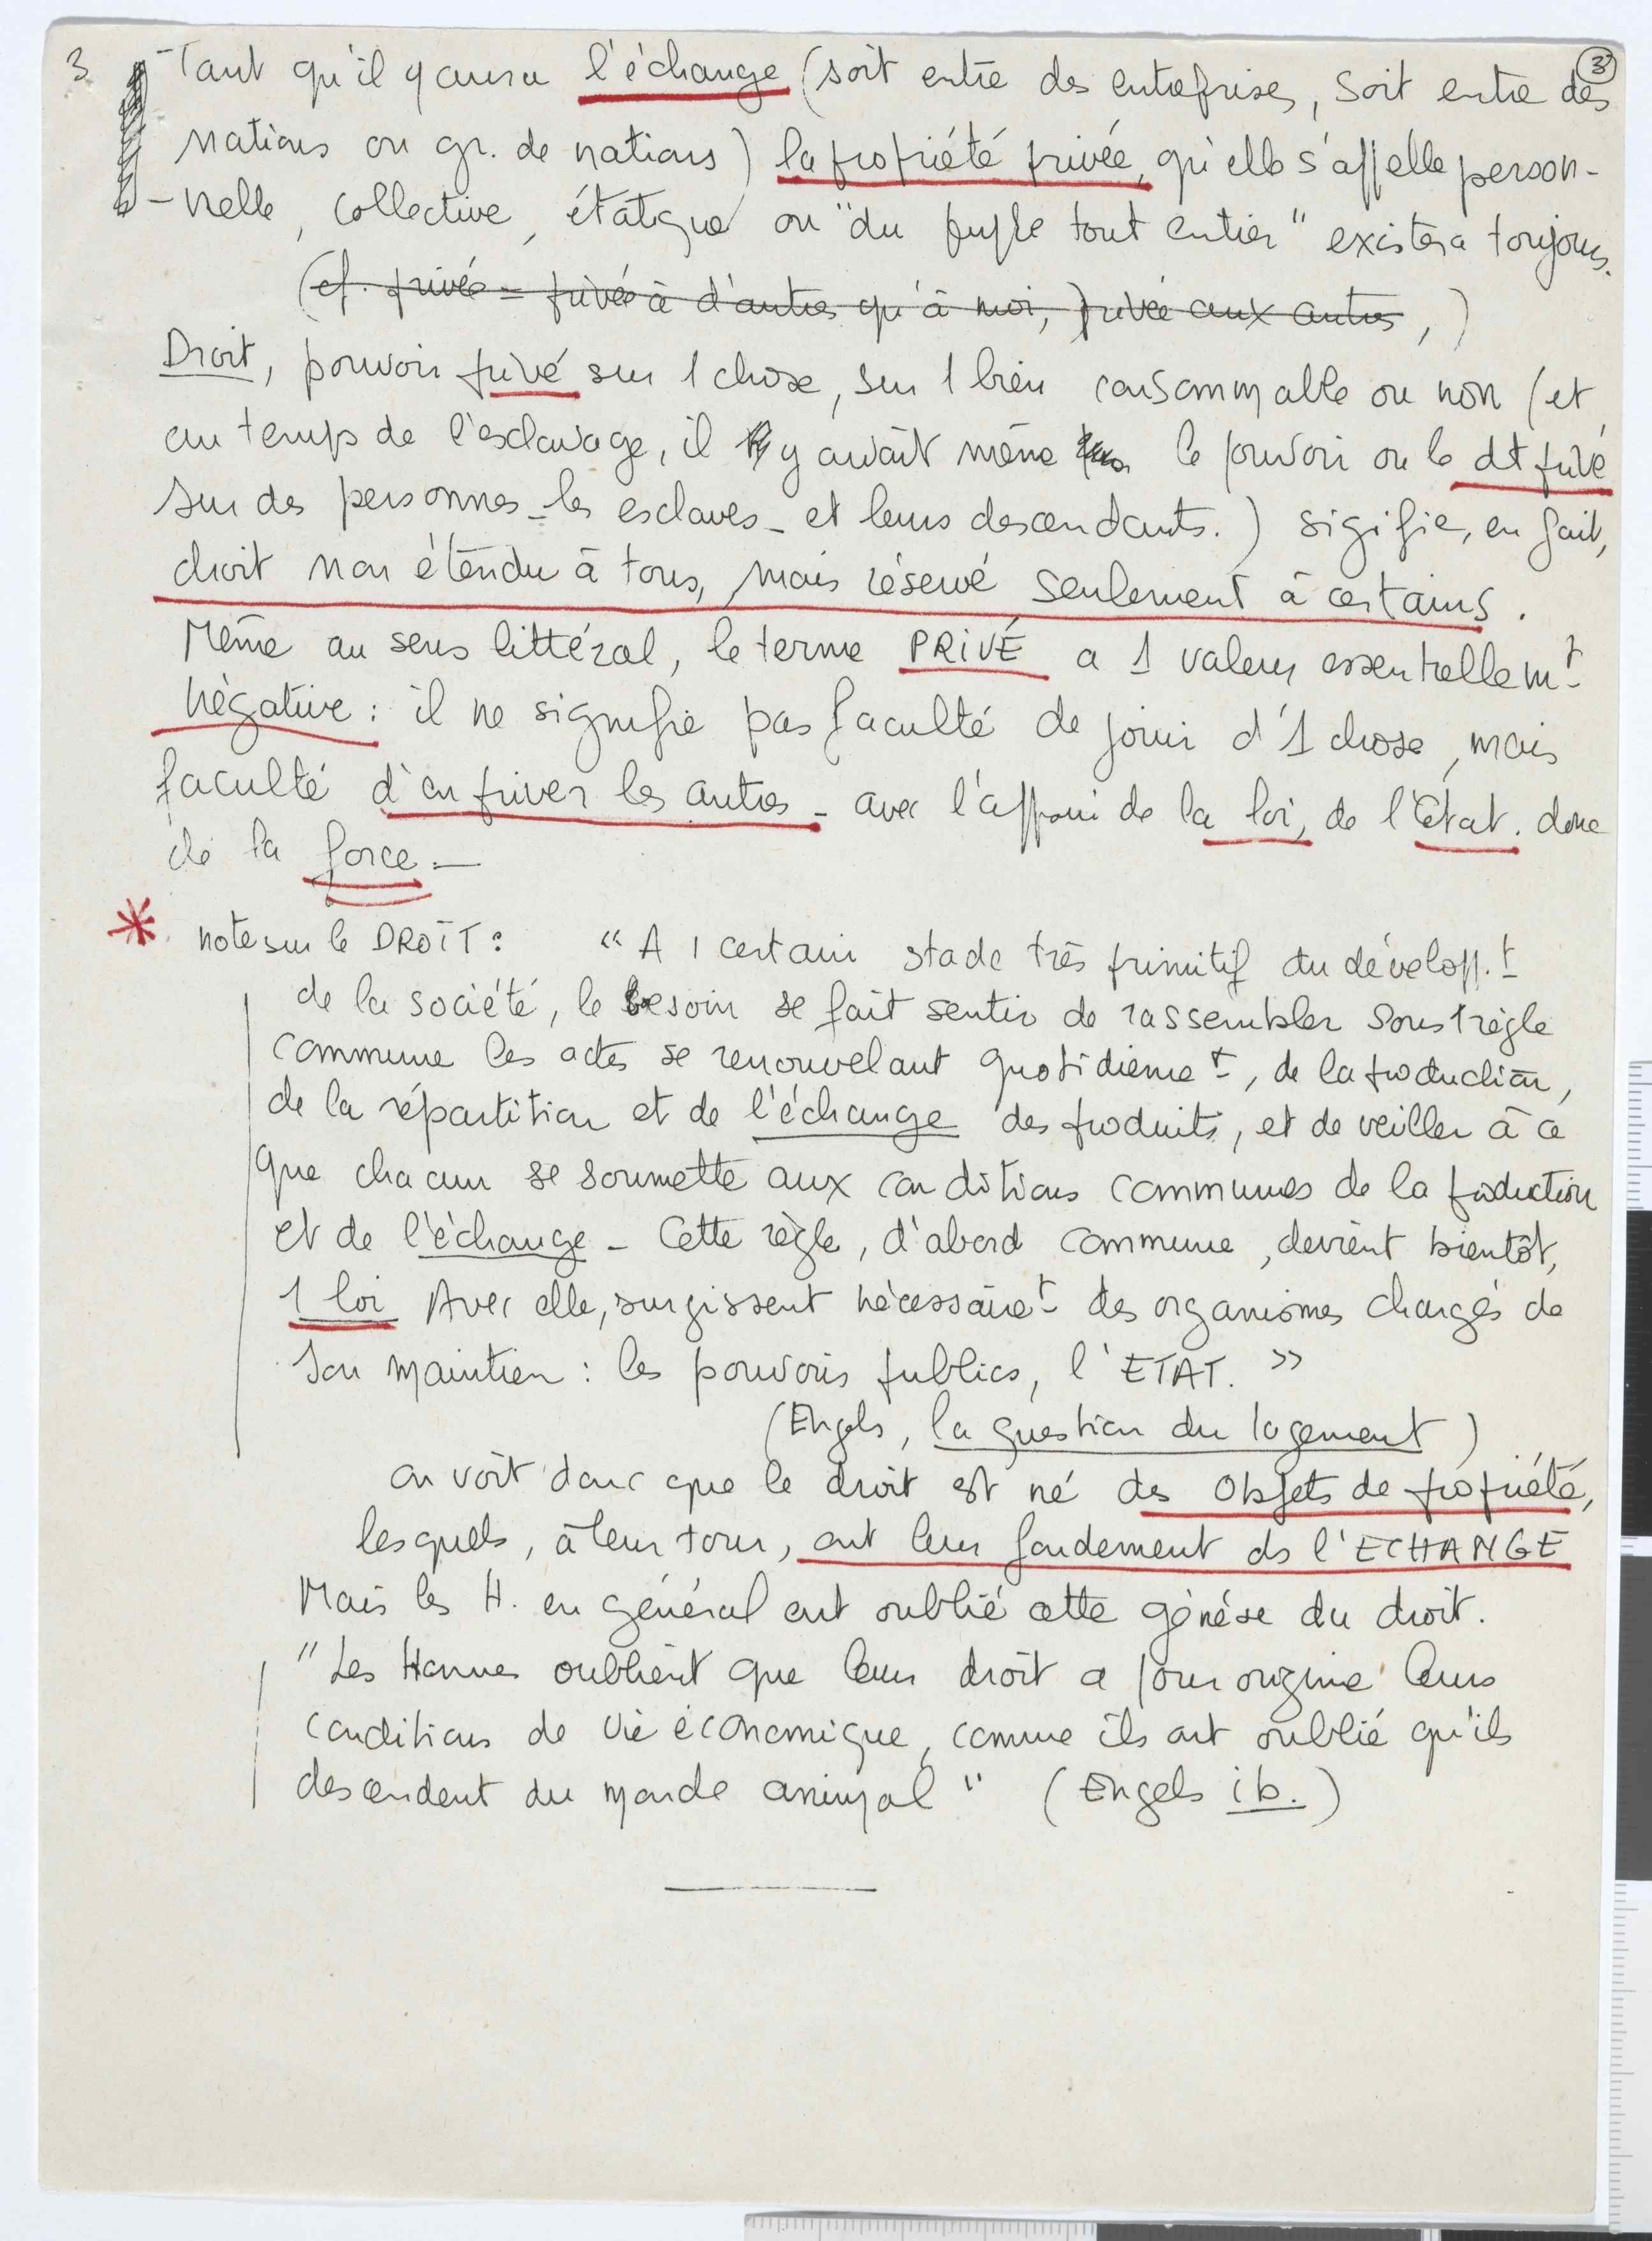 3
3
- Tant qu'il y aura l'échange (soit entre des entreprises, soit entre des
nations ou gr. de nations) la propriété privée, qu'elle s'appelle person-
-nelle, collective, étatique ou "du peuple tout entier" existera toujours.
(cf. privée = privée à d'autres qu'à moi, privée aux autres, )
Droit, pouvoir privé sur 1 chose, sur 1 bien consommable ou non (et
au temps de l'esclavage, il y avait même le pouvoir ou le dt privé
sur des personnes - les esclaves - et leurs descendants.) sigifie, en fait,
droit non étendu à tous, mais réservé seulement à certains.
Même au sens littéral, le terme PRIVÉ a 1 valeur essentiellemt
négative : il ne signifie pas faculté de jouir d'1 chose, mais
faculté d'en priver les autres - avec l'appui de la loi, de l'état. donc
de la force -
* note sur le DROIT : « A 1 certain stade très primitif du développ.t
de la société, le besoin se fait sentir de rassembler sous 1 règle
commune les actes se renouvelant quotidienemt, de la production,
de la répartition et de l'échange des produits, et de veiller à ce
que chacun se soumette aux conditions communes de la production
et de l'échange - Cette règle, d'abord commune, devient bientôt,
1 loi Avec elle, surgissent nécessairet des organismes chargés de
son maintien : les pouvoirs publics, l'ETAT. »
(Engels, la question du logement)
on voit donc que le droit est né des objets de propriété,
lesquels, à leur tour, ont leur fondement ds l'ECHANGE
Mais les H. en général ont oublié cette génèse du droit.
"Les Hommes oublient que leur droit a pour origine leurs
conditions de vie économique, comme ils ont oublié qu'ils
descendent du monde animal" (Engels ib.)